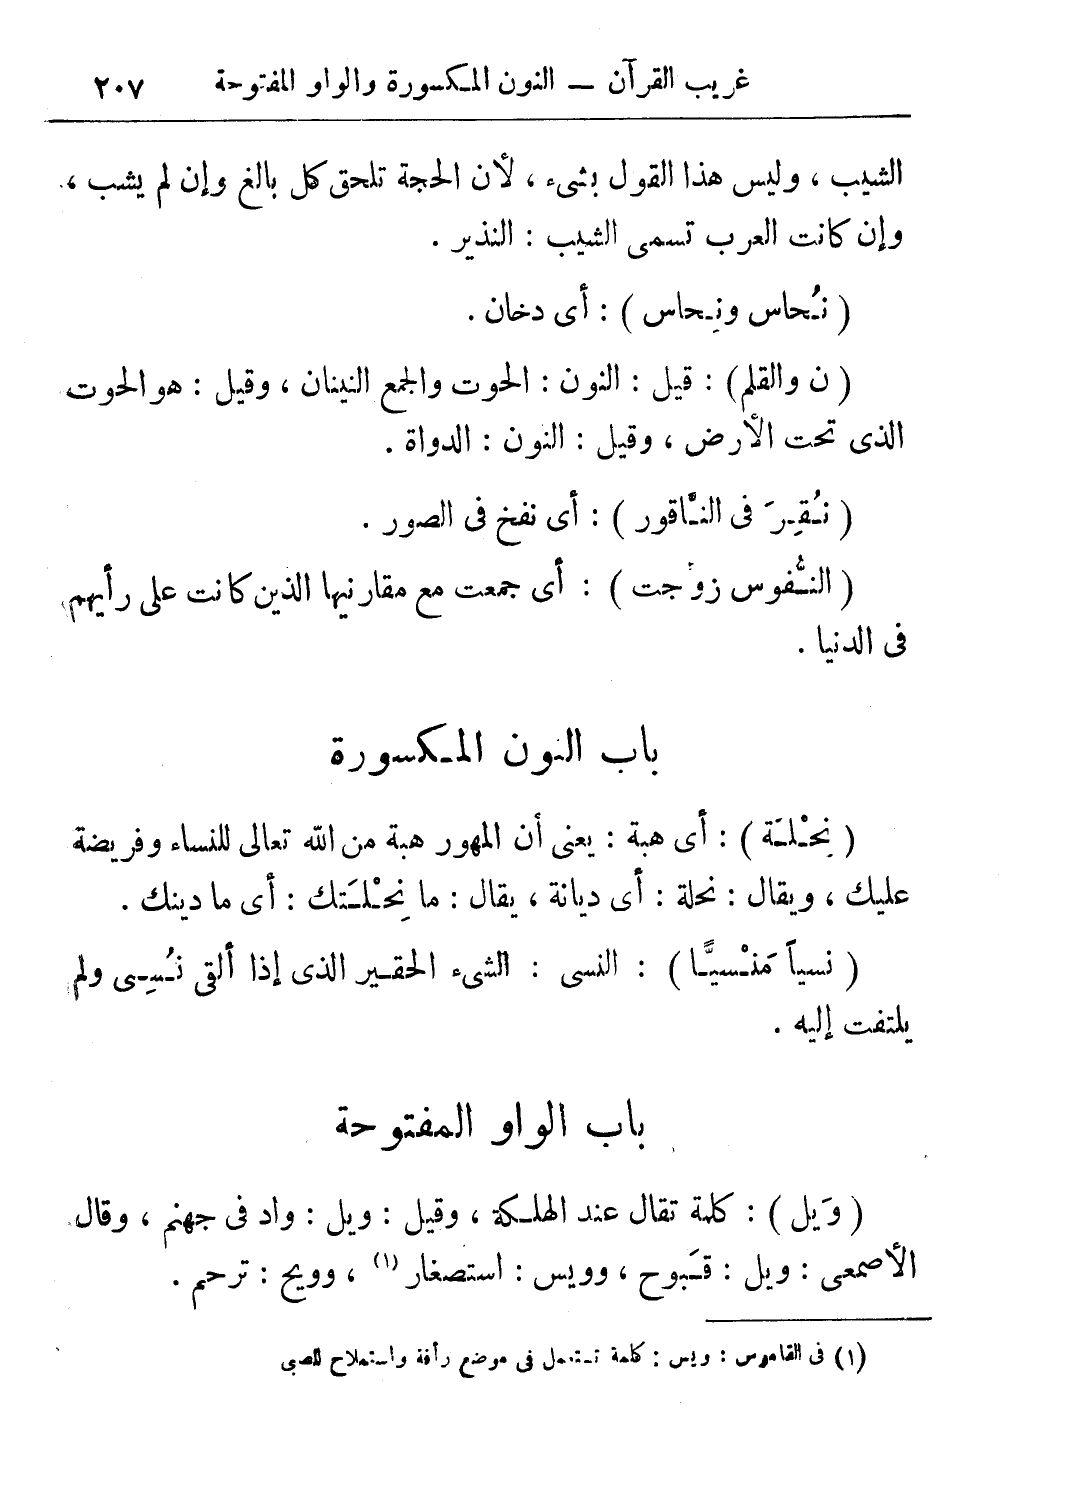 غريب القرآن — النون المكسورة والواو المفتوحة ٢٠٧
الشيب ، وليس هذا القول بشىء ، لأن الحجة تلحق كل بالغ وإن لم يشب ،
وإن كانت العرب تسمى الشيب : النذير .
( نُحاس ونِحاس ) : أى دخان .
( ن والقلم ) : قيل : النون : الحوت والجمع النينان ، وقيل : هو الحوت
الذى تحت الأرض ، وقيل : النون : الدواة .
( نُقِرَ فى النَّاقور ) : أى نفخ فى الصور .
( النُّفوس زوجت ) : أى جمعت مع مقارنيها الذين كانت على رأيهم
فى الدنيا .
باب النون المكسورة
( نِحْلَة ) : أى هبة : يعنى أن المهور هبة من الله تعالى للنساء وفريضة
عليك ، ويقال : نحلة : أى ديانة ، يقال : ما نِحْلَتك : أى ما دينك .
( نسياً مَنْسيًّا ) : النسى : الشىء الحقير الذى إذا ألقى نُسِى ولم
يلتفت إليه .
باب الواو المفتوحة
( وَيل ) : كلمة تقال عند الهلكة ، وقيل : ويل : واد فى جهنم ، وقال
الأصمعى : ويل : قَبوح ، وويس : استصغار (١) ، وويح : ترحم .
(١) فى القاموس : ويس : كلمة تستعمل فى موضع رأفة واستملاح للصبى